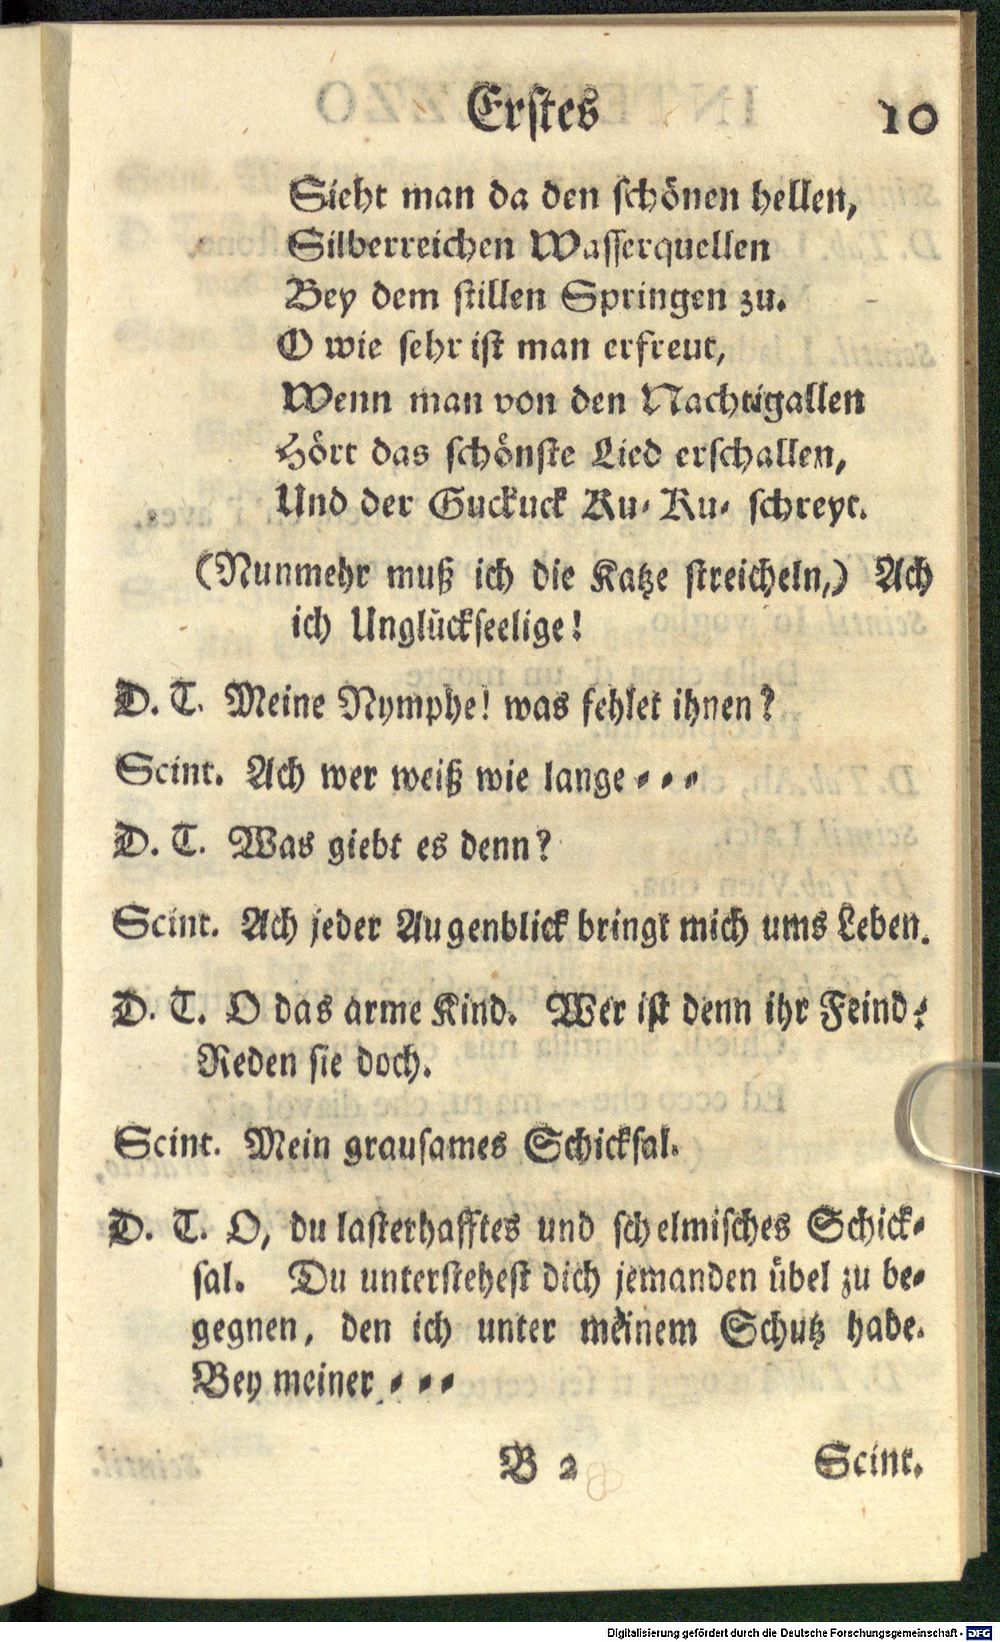 Erstes 10
Sieht man da den schönen hellen,
Silberreichen Wasserquellen
Bey dem stillen Springen zu.
O wie sehr ist man erfreut,
Wenn man von den Nachtigallen
Hört das schönste Lied erschallen,
Und der Guckuck Ku- Ku- schreyt.
(Nunmehr muß ich die Katze streicheln,) Ach
ich Unglückseelige!
D. T. Meine Nymphe! was fehlet ihnen?
Scint. Ach wer weiß wie lange - - -
D. T. Was giebt es denn?
Scint. Ach jeder Augenblick bringt mich ums Leben.
D. T. O das arme Kind. Wer ist denn ihr Feind?
Reden sie doch.
Scint. Mein grausames Schicksal.
D. T. O, du lasterhafftes und schelmisches Schick-
sal. Du unterstehest dich jemanden übel zu be-
gegnen, den ich unter meinem Schutz habe.
Bey meiner - - -
B 2 Scint.
Digitalisierung gefördert durch die Deutsche Forschungsgemeinschaft - DFG